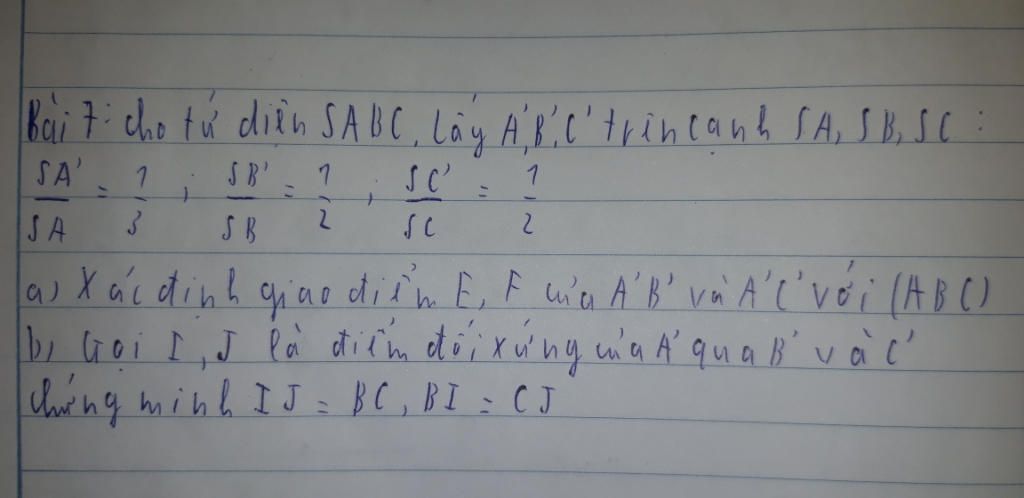 Bài 7: cho tứ diện SABC, lấy A', B', C' trên cạnh SA, SB, SC :
SA'/SA = 1/3 ; SB'/SB = 1/2 ; SC'/SC = 1/2
a) Xác định giao điểm E, F của A'B' và A'C' với (ABC)
b, Gọi I, J là điểm đối xứng của A' qua B' và C'
chứng minh IJ = BC, BI = CJ